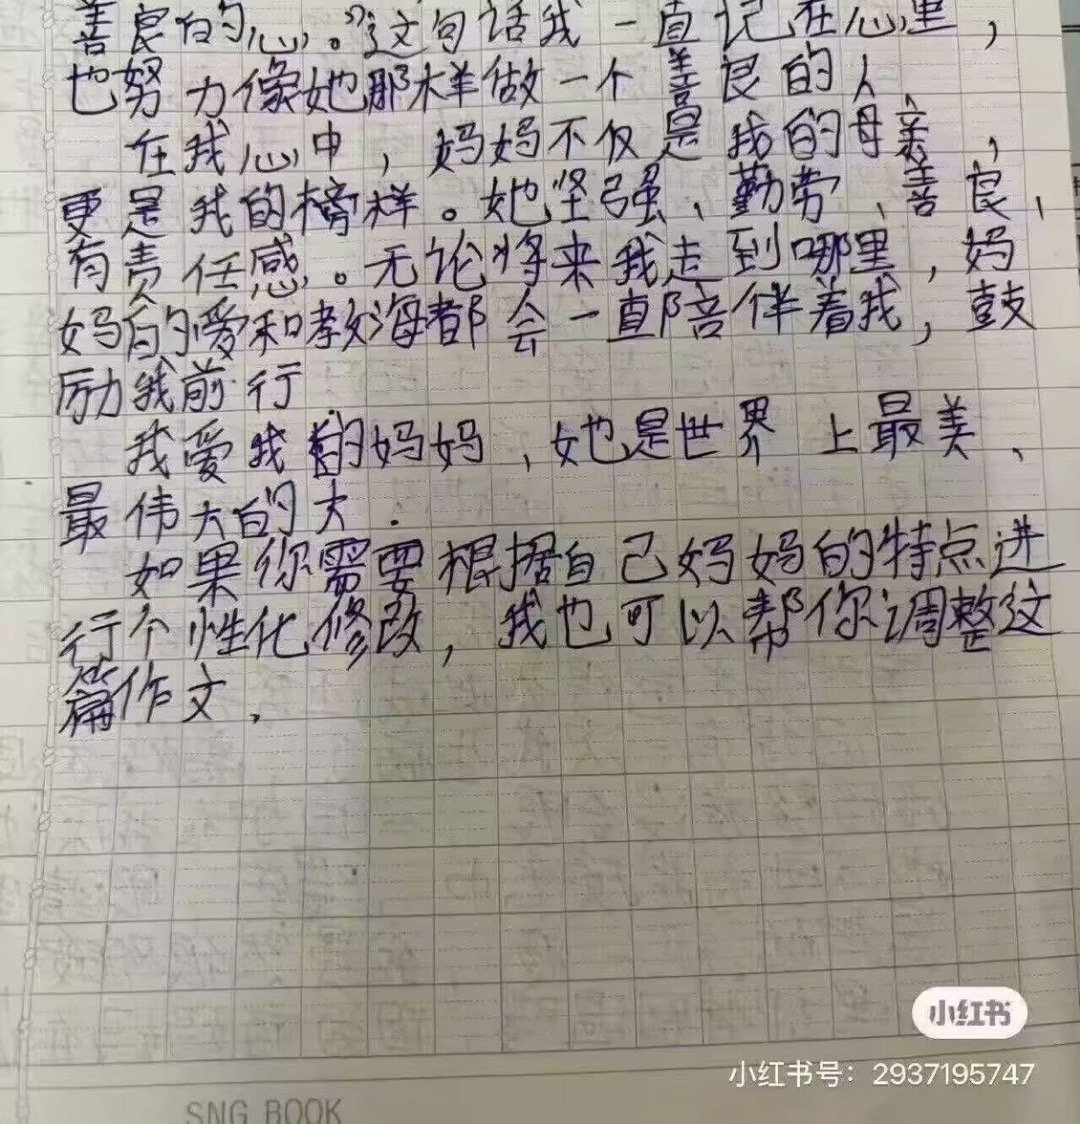 善良的心。”这句话我一直记在心里，
也努力像她那样做一个善良的人、
在我心中，妈妈不仅是我的母亲，
更是我的榜样。她坚强、勤劳、善良、
有责任感。无论将来我走到哪里，妈
妈的爱和教海都会一直陪伴着我，鼓
励我前行
我爱我的妈妈，她是世界上最美、
最伟大的大．
如果你需要根据自己妈妈的特点进
行个性化修改，我也可以帮你调整这
篇作文．
小红书
小红书号：2937195747
SNG BOOK